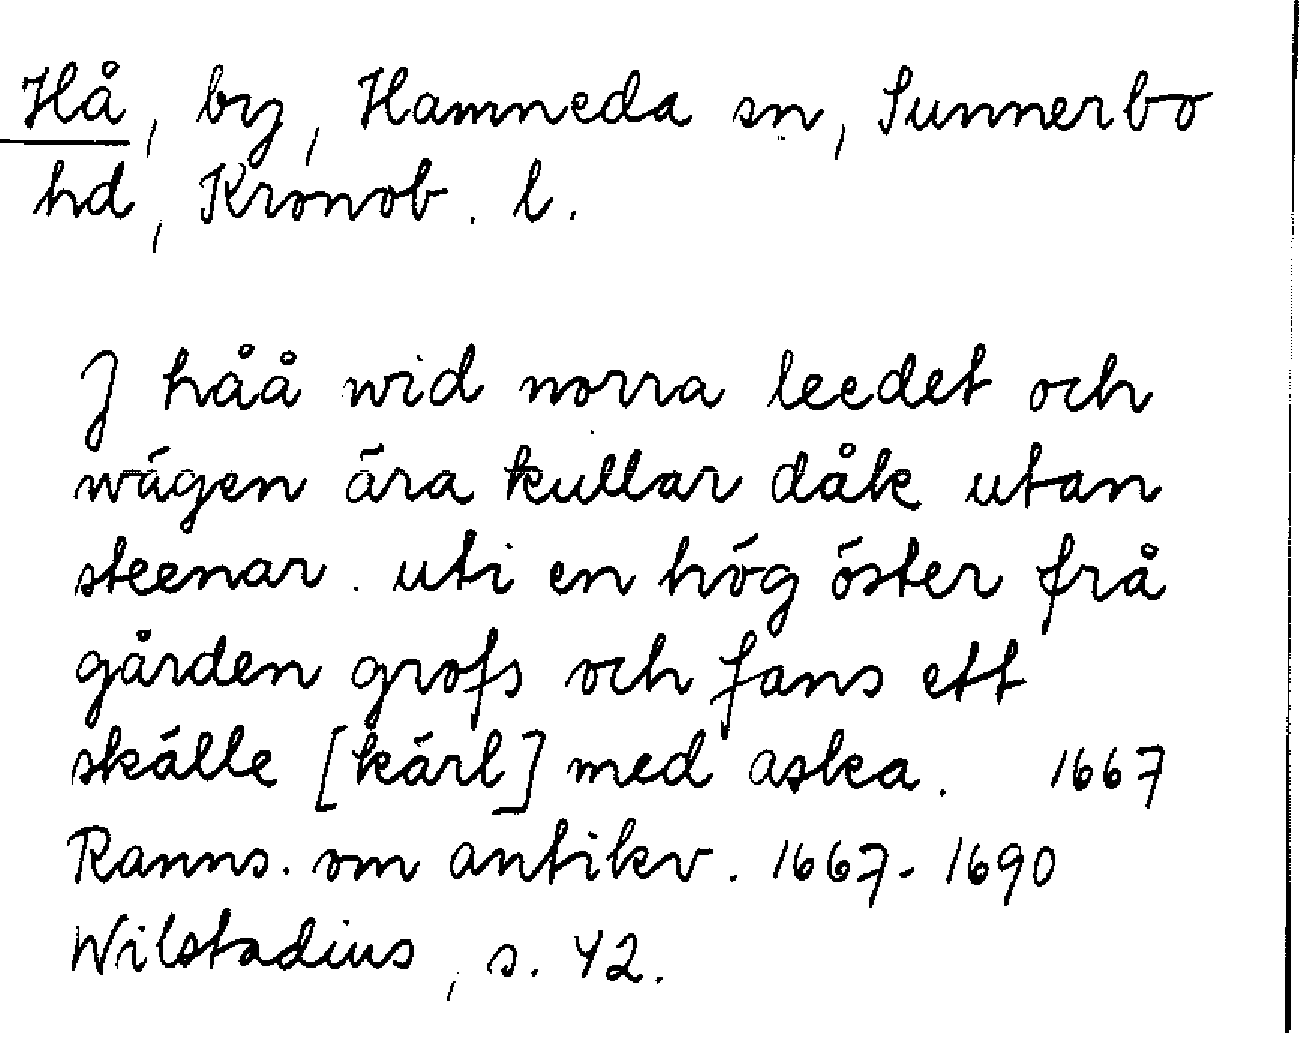 Hå, by, Hamneda sn, Sunnerbo
hd, Kronob. l.
J håå wid norra leedet och
wägen ära kullar dåk utan
steenar. uti en hög öster frå
gården grofs och fans ett
skälle [kärl] med aska. 1667
Ranns. om antikv. 1667-1690
Wilstadius, s. 42.